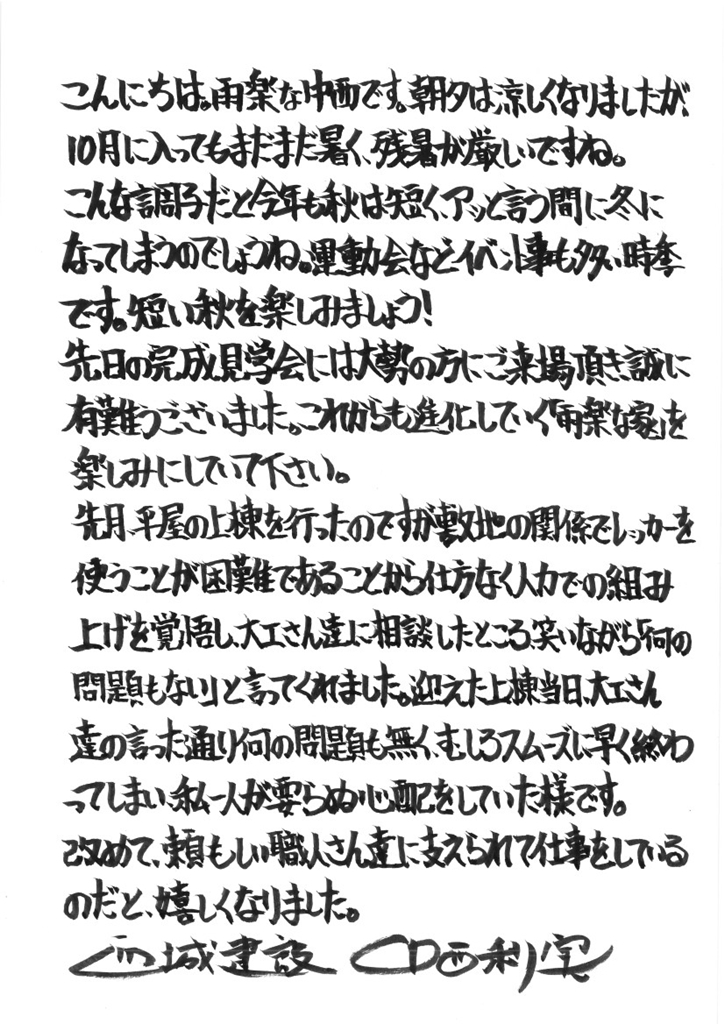 こんにちは。雨楽な中西です。朝夕は涼しくなりましたが、
10月に入ってもまだまだ暑く、残暑が厳しいですね。
こんな調子だと今年も秋は短く、アッと言う間に冬に
なってしまうのでしょうね。運動会などイベント事も多い時季
です。短い秋を楽しみましょう！
先日の完成見学会には大勢の方にご来場頂き誠に
有難うございました。これからも進化していく「雨楽な家」を
楽しみにしていて下さい。
先月、平屋の上棟を行ったのですが敷地の関係でレッカーを
使うことが困難であることから仕方なく人力での組み
上げを覚悟し、大工さん達に相談したところ、笑いながら「何の
問題もない」と言ってくれました。迎えた上棟当日、大工さん
達の言った通り何の問題も無く、むしろスムーズに早く終わ
ってしまい、私一人が要らぬ心配をしていた様です。
改めて、頼もしい職人さん達に支えられて仕事をしている
のだと、嬉しくなりました。
西城建設 中西利寛